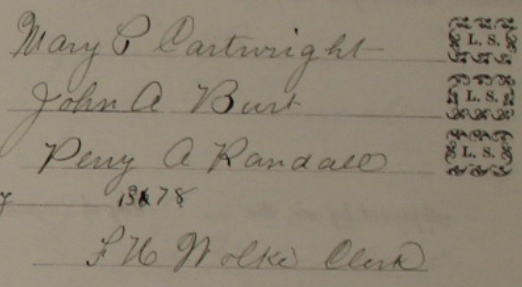 Mary P Cartwright L. S.
John A Burt L. S.
Perry A Randall L. S.
1878
F W Wolke Clerk